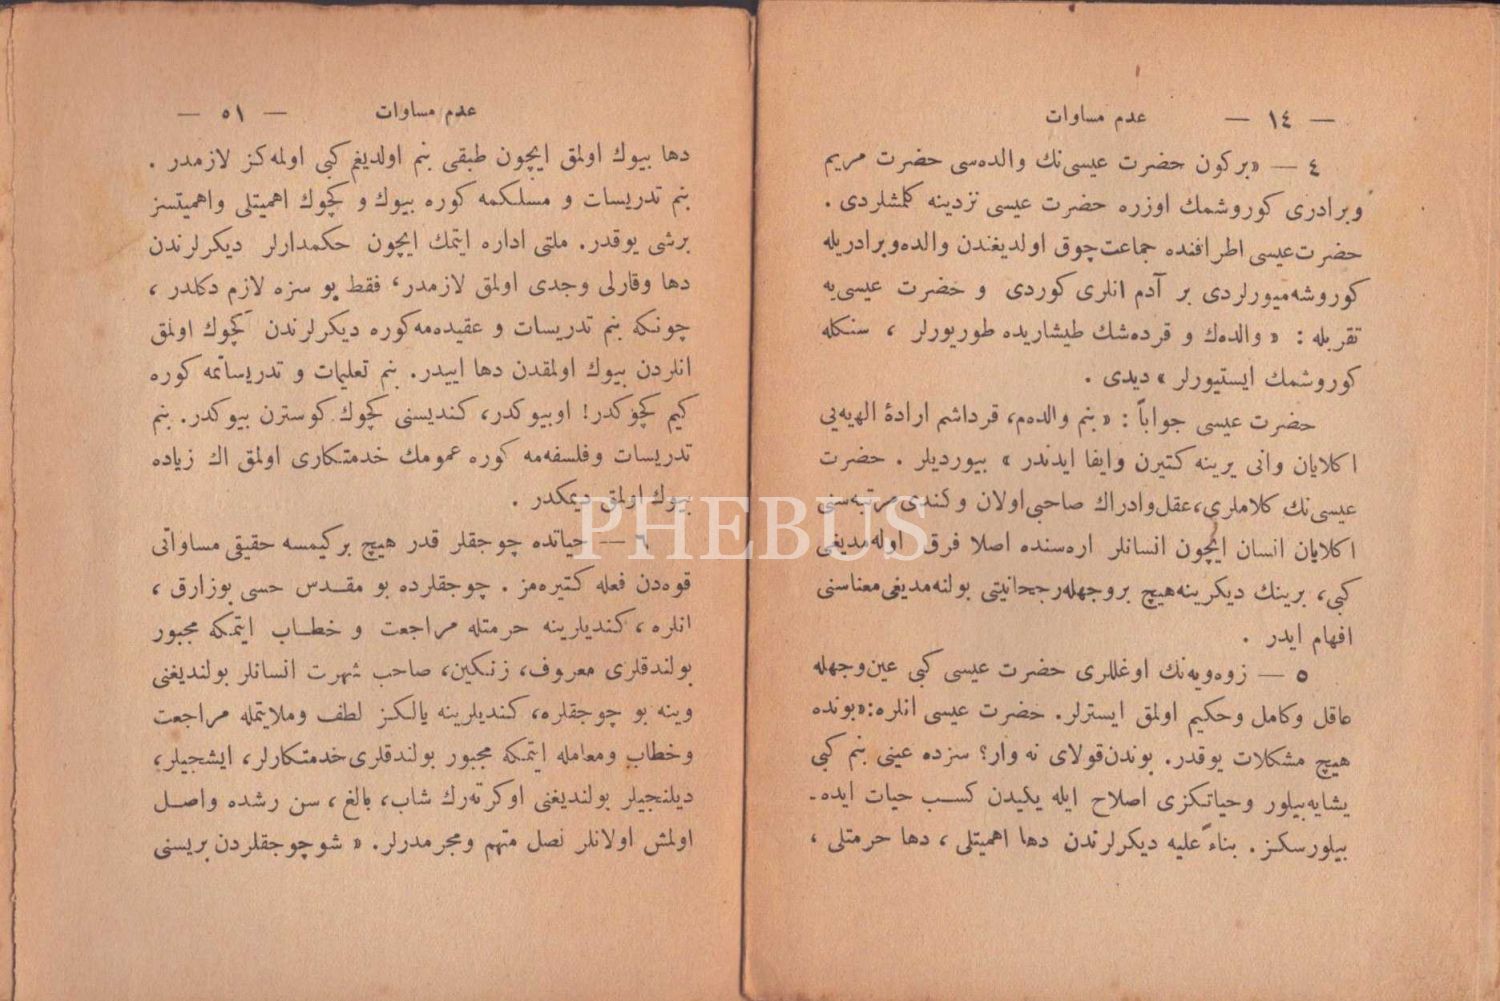 — ١٤ — عدم مساوات
٤ — «بركون حضرت عيسى‌نك والده‌سى حضرت مريم
وبرادرى كوروشمك اوزره حضرت عيسى نزدينه كلمشلردى .
حضرت‌عيسى اطرافنده جماعت‌چوق اولديغندن والده‌وبرادريله
كوروشه‌ميورلردى بر آدم انلرى كوردى و حضرت عيسى‌يه
تقربله : « والده‌ك و قرده‌شك طيشاريده طوريورلر ، سنكله
كوروشمك ايستيورلر » ديدى .
حضرت عيسى جواباً : « بنم والده‌م، قرداشم ارادهٔ الهيه‌يى
اكلايان وانى يرينه كتيرن وايفا ايدندر » بيورديلر . حضرت
عيسى‌نك كلاملرى، عقل‌وادراك صاحبى‌اولان وكندى مرتبه‌سنى
اكلايان انسان ايچون انسانلر اره‌سنده اصلا فرق اوله‌مديغى
كبى، برينك ديكرينه‌هيچ بروجهله‌رجحانيتى بولنه‌مديغى‌معناسنى
افهام ايدر .
٥ — زوه‌ويه‌نك اوغللرى حضرت عيسى كبى عين‌وجهله
عاقل وكامل وحكيم اولمق ايسترلر. حضرت عيسى انلره:«بونده
هيچ مشكلات يوقدر. بوندن‌قولاى نه وار؟ سزده عينى بنم كبى
يشايه‌بيلور وحياتكزى اصلاح ايله يكيدن كسب حيات ايده‌ـ
بيلورسكز . بناءً عليه ديكرلرندن دها اهميتلى ، دها حرمتلى ،
عدم مساوات — ٥١ —
دها بيوك اولمق ايچون طبقى بنم اولديغم كبى اولمه‌كز لازمدر .
بنم تدريسات و مسلكمه كوره بيوك و كچوك اهميتلى واهميتسز
برشى يوقدر. ملتى اداره ايتمك ايچون حكمدارلر ديكرلرندن
دها وقارلى وجدى اولمق لازمدر، فقط بو سزه لازم دكلدر ،
چونكه بنم تدريسات و عقيده‌مه كوره ديكرلرندن كچوك اولمق
انلردن بيوك اولمقدن دها اييدر. بنم تعليمات و تدريساتمه كوره
كيم كچوكدر! اوبيوكدر، كنديسنى كچوك كوسترن بيوكدر. بنم
تدريسات وفلسفه‌مه كوره عمومك خدمتكارى اولمق اك زياده
بيوك اولمق ديمكدر .
٦ — حياتده چوجقلر قدر هيچ بركيمسه حقيقى مساواتى
قوه‌دن فعله كتيره‌مز . چوجقلرده بو مقدس حسى بوزارق ،
انلره ، كنديلرينه حرمتله مراجعت و خطاب ايتمكه مجبور
بولندقلرى معروف، زنكين، صاحب شهرت انسانلر بولنديغنى
وينه بو چوجقلره، كنديلرينه يالكز لطف وملايتمله مراجعت
وخطاب ومعامله ايتمكه مجبور بولندقلرى‌خدمتكارلر، ايشجيلر،
ديلنجيلر بولنديغنى اوكرته‌رك شاب، بالغ ، سن رشده واصل
اولمش اولانلر نصل متهم ومجرمدرلر. « شوچوجقلردن بريسنى
PHEBUS